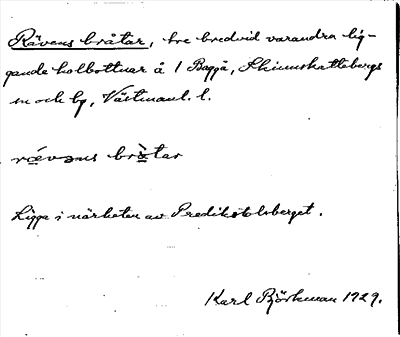 Rävens bråtar, tre bredvid varandra lig-
gande kolbottnar å 1 Baggå, Skinnskattebergs
sn och bg, Västmanl. l.
rævəns bråtar
Ligga i närheten av Predikstolsberget.
Karl Björkman 1929.